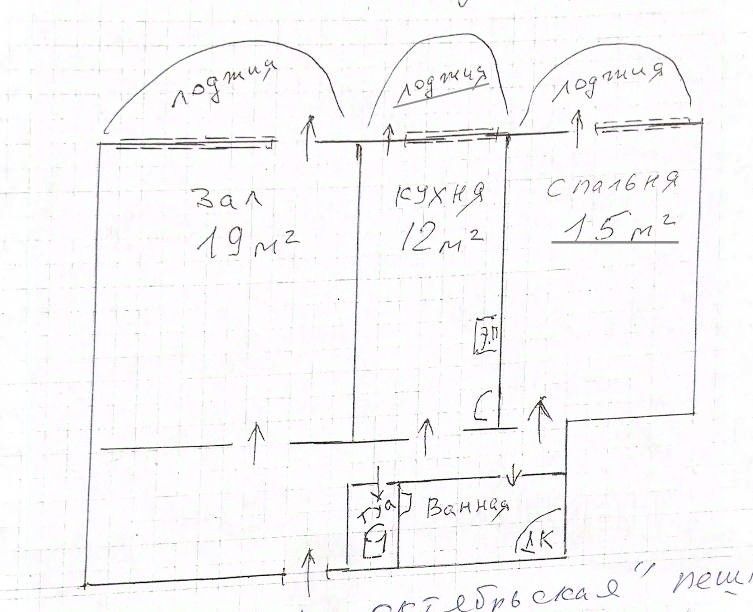 лоджия
лоджия
лоджия
Зал
19 м²
кухня
12 м²
спальня
15 м²
э.п
Ванная
ДК
октябрьская"